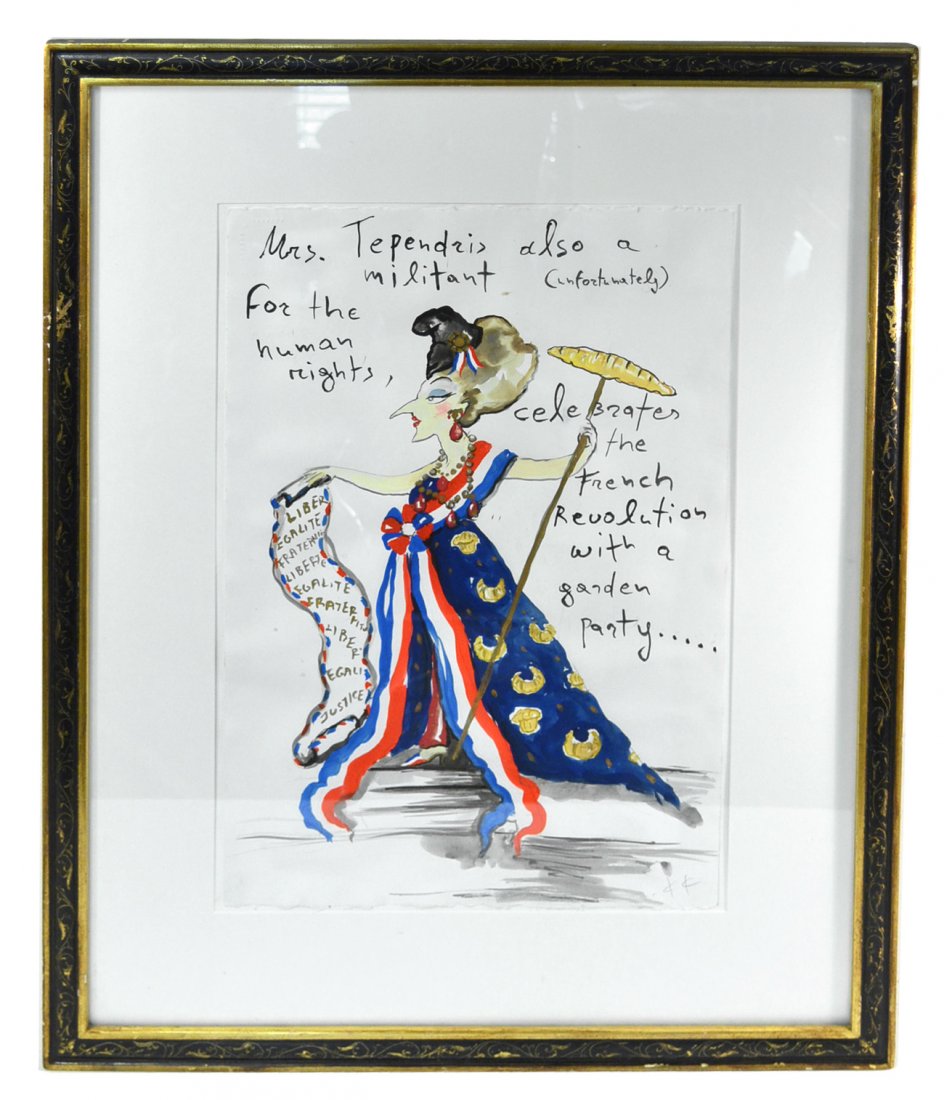 Mrs. Tependris also a
militant (unfortunately)
For the
human
rights,
celebrates
the
French
Revolution
with a
garden
party.....
LIBER
EGALITÉ
FRATERNI
LIBERTE
EGALITE
FRATER
NITE
LIBE
R
EGALI
JUSTICE
KK